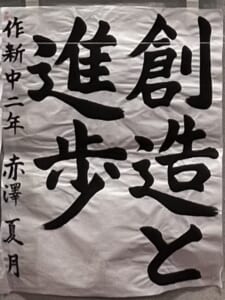 創造と
進歩
作新中二年 赤澤 夏月